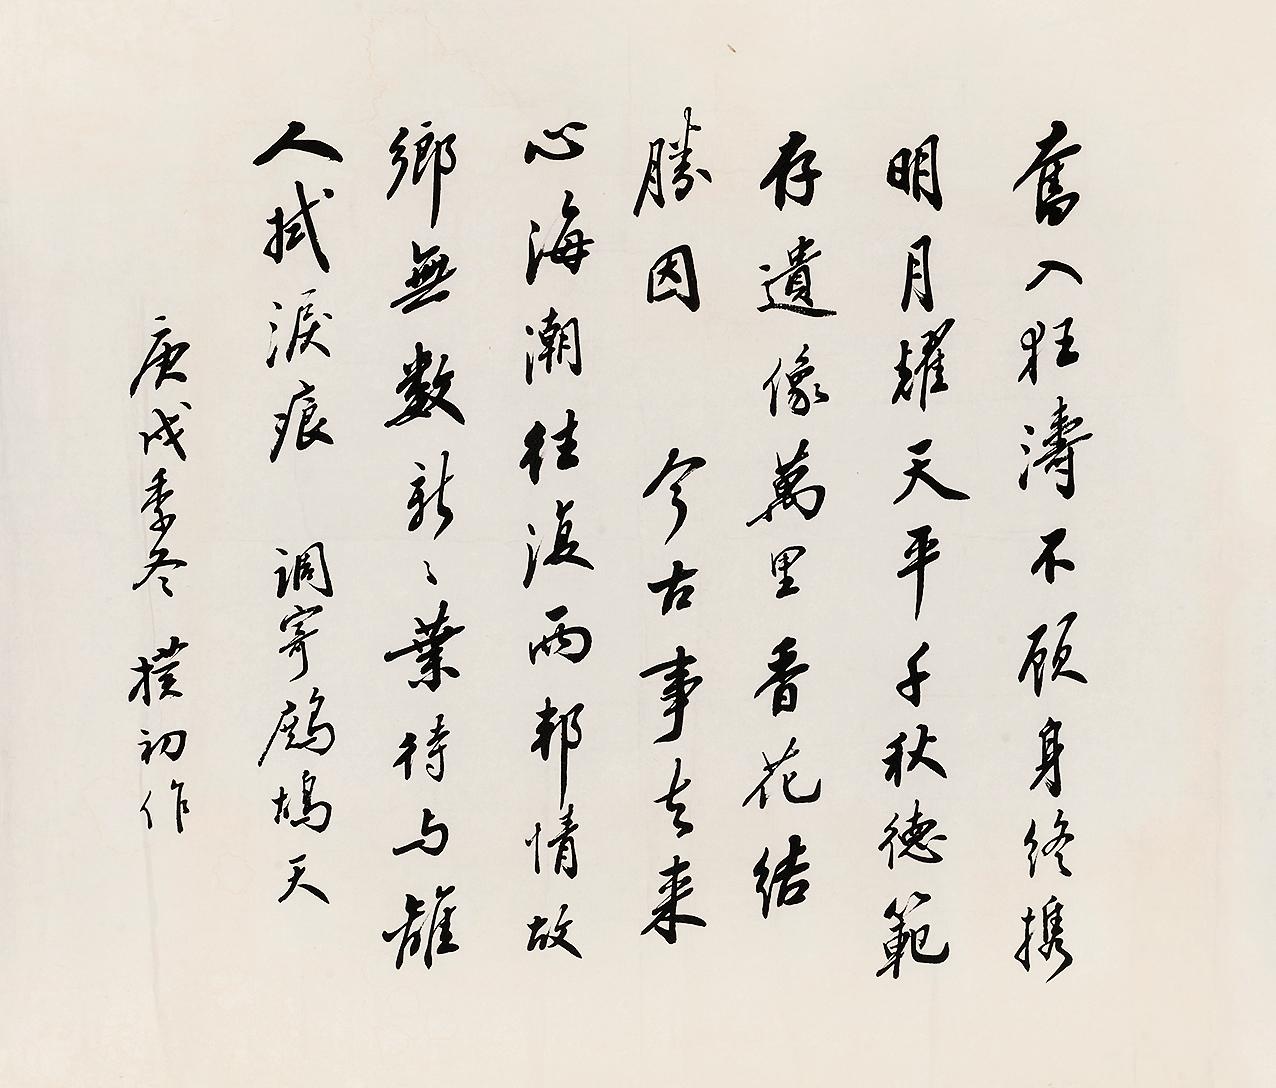 奮入狂濤不顧身終携
明月耀天平千秋德範
存遺像萬里香花結
勝因 今古事去來
心海潮往復兩邦情故
鄉無數新〻葉待与離
人拭淚痕 調寄鷓鴣天
庚戌季冬 樸初作